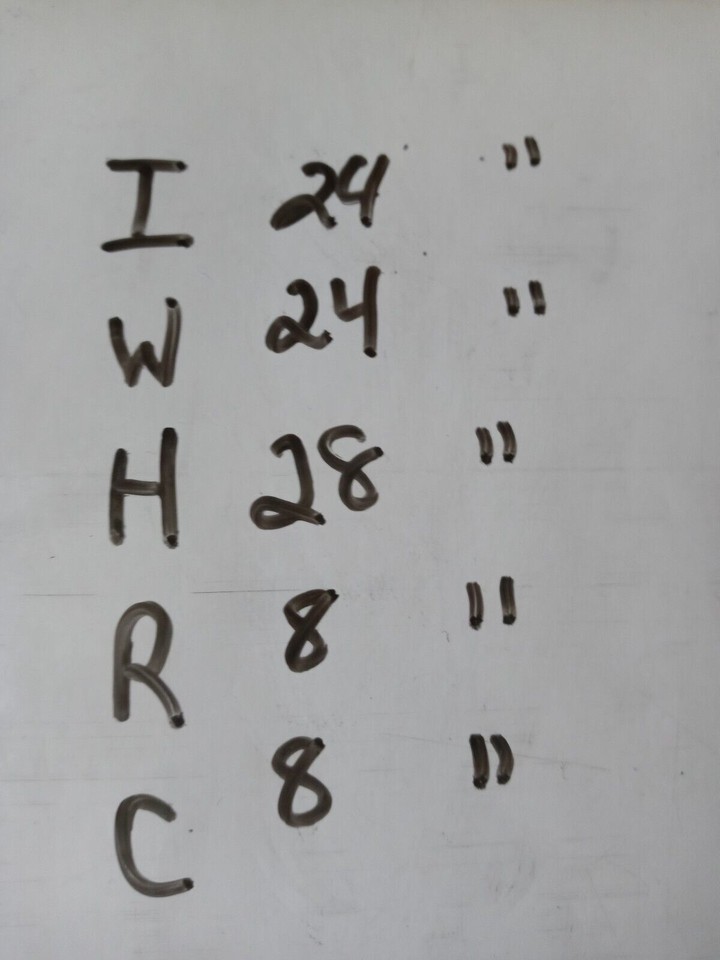 I 24 "
W 24 "
H 28 "
R 8 "
C 8 "